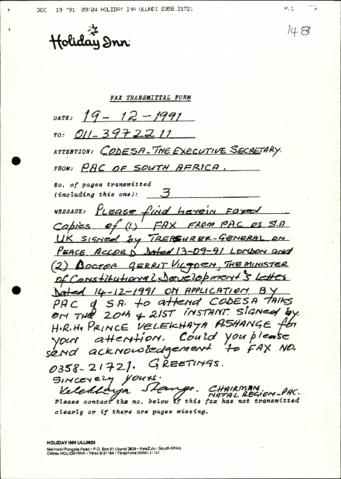 DEC 19 '91 09:04 HOLIDAY INN ULUNDI 0358 21721 P.1
148
Holiday Inn
FAX TRANSMITTAL FORM
DATE: 19-12-1991
TO: 011-3972211
ATTENTION: CODESA-THE EXECUTIVE SECRETARY.
FROM: PAC OF SOUTH AFRICA.
No. of pages transmitted
(including this one): 3
MESSAGE: PLEASE find herein FAXED
Copies of (1) FAX FROM PAC OF S.A
UK SIGNED by TREASURER-GENERAL ON
PEACE ACCORD Dated 13-09-91 LONDON and
(2) DOCTOR GERRIT VILJOEN, THE MINISTER
of Constitutional Development's Letter
Dated 14-12-1991 ON APPLICATION BY
PAC of S.A. to attend CODESA TALKS
ON THE 20th & 21ST INSTANT. Signed by
H.R.H. PRINCE VELEKHAYA ASHANGE for
your attention. Could you please
send acknowledgement to FAX NO.
0358-21721. GREETINGS.
SINCERELY yours.
Velekhaya Shange. CHAIRMAN
NATAL REGION-PAC.
Please contact the no. below if this fax has not transmitted
clearly or if there are pages missing.
HOLIDAY INN ULUNDI